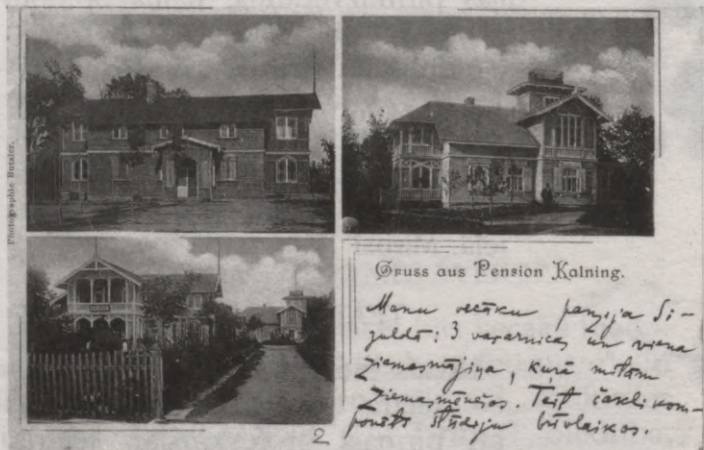 Photographie Butzler.
Gruss aus Pension Kalning.
Manu vecāku panzija Si-
guldā: 3 vasarnicas un viena
ziemasmājiņa, kurā mitām
ziemasmēnešos. Teit čakli kom-
ponēts studiju brīvlaikos.
2